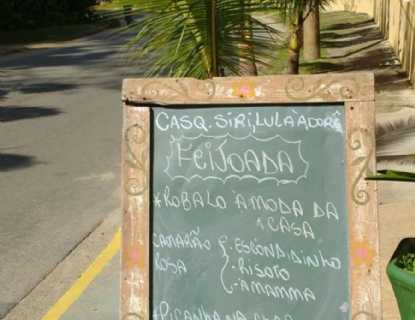 CASQ. SIRI, LULA À DORÊ
FEIJOADA
*ROBALO À MODA DA
CASA
CAMARÃO { - ESCONDIDINHO
ROSA - RISOTO
- A MAMMA
*PICANHA NA